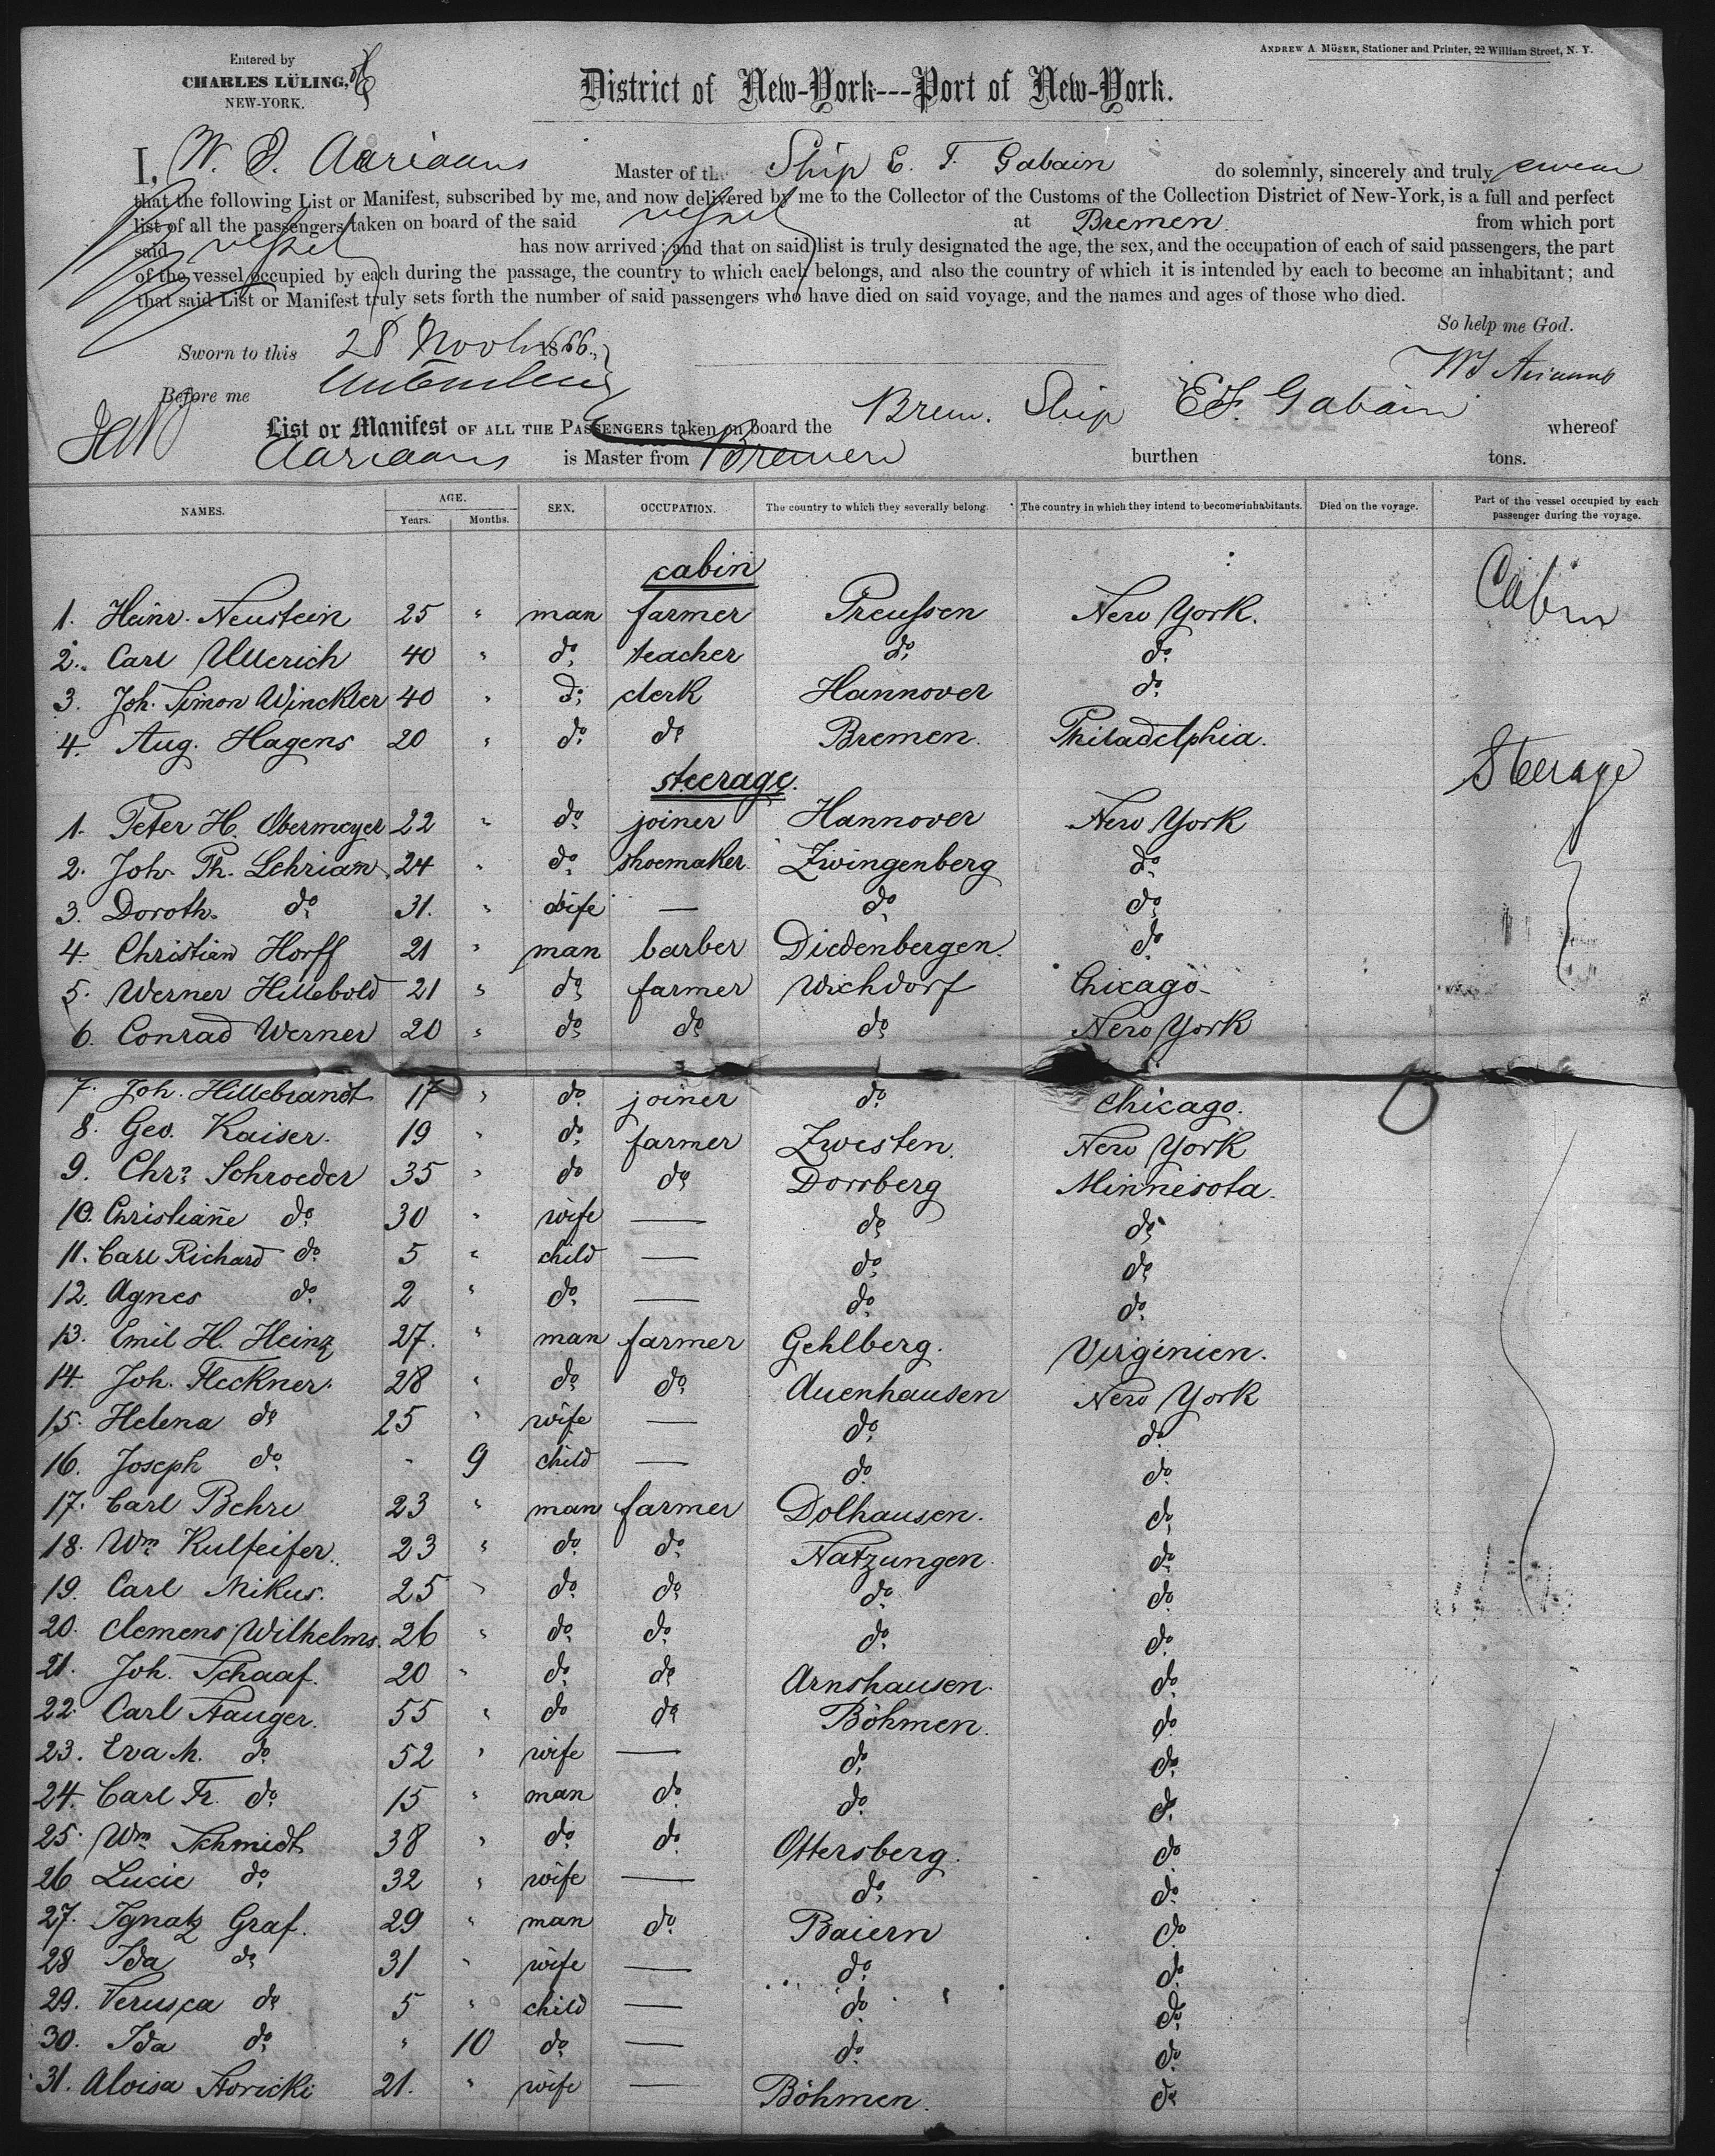 Entered by
CHARLES LÜLING,
NEW-YORK.
ANDREW A MÜSER, Stationer and Printer, 22 William Street, N. Y.
District of New-York---Port of New-York.
I, W. J. Aariaans Master of the Ship E. F. Gabain do solemnly, sincerely and truly swear
that the following List or Manifest, subscribed by me, and now delivered by me to the Collector of the Customs of the Collection District of New-York, is a full and perfect
list of all the passengers taken on board of the said vessel at Bremen from which port
said vessel has now arrived; and that on said list is truly designated the age, the sex, and the occupation of each of said passengers, the part
of the vessel occupied by each during the passage, the country to which each belongs, and also the country of which it is intended by each to become an inhabitant; and
that said List or Manifest truly sets forth the number of said passengers who have died on said voyage, and the names and ages of those who died.
So help me God.
Sworn to this 28 Novbr 1866.
Before me
List or Manifest OF ALL THE PASSENGERS taken on board the Brem. Ship E. F. Gabain whereof
Aariaans is Master from Bremen burthen tons.
NAMES. AGE. Years. Months. SEX. OCCUPATION. The country to which they severally belong. The country in which they intend to become inhabitants. Died on the voyage. Part of the vessel occupied by each passenger during the voyage.
cabin Cabin
1. Heinr. Neustein 25 " man farmer Preussen New York.
2. Carl Ullerich 40 " do teacher do do
3. Joh. Simon Winckler 40 " do clerk Hannover do
4. Aug. Hagens 20 " do do Bremen. Philadelphia.
steerage. Steerage
1. Peter H. Obermeyer 22 " do joiner Hannover New York
2. Joh. Ph. Lehriam 24 " do shoemaker Zwingenberg do
3. Doroth. do 31. " wife — do do
4. Christian Horff 21 " man barber Diedenbergen. do
5. Werner Hillebold 21 " do farmer Wichdorf Chicago
6. Conrad Werner 20 " do do do New York
7. Joh. Hillebrandt 17 " do joiner do Chicago.
8. Geo. Kaiser. 19 " do farmer Zwesten. New York
9. Chrn Schroeder 35 " do do Dorrberg Minnesota.
10. Christiane do 30 " wife — do do
11. Carl Richard do 5 " child — do do
12. Agnes do 2 " do — do do
13. Emil H. Heinz 27. " man farmer Gehlberg. Virginien.
14. Joh. Fleckner. 28 " do do Auenhausen New York
15. Helena do 25 " wife — do do
16. Joseph do - 9 child — do do
17. Carl Behre 23 " man farmer Dolhausen. do
18. Wm Kulfeifer. 23 " do do Natzungen. do
19. Carl Mikus. 25 " do do do do
20. Clemens Wilhelms. 26 " do do do do
21. Joh. Schaaf. 20 " do do Arnshausen. do
22. Carl Nauger. 55 " do do Böhmen. do
23. Eva M. do 52 " wife — do do
24. Carl Fr. do 15 " man do do do
25. Wm Schmidt 38 " do do Ottersberg. do
26 Lucie do 32 " wife — do do
27. Ignatz Graf. 29 " man do Baiern do
28 Ida do 31 " wife — do do
29. Verusca do 5 " child — do do
30. Ida do " 10 do — do do
31. Aloisa Noricki 21. " wife — Böhmen. do